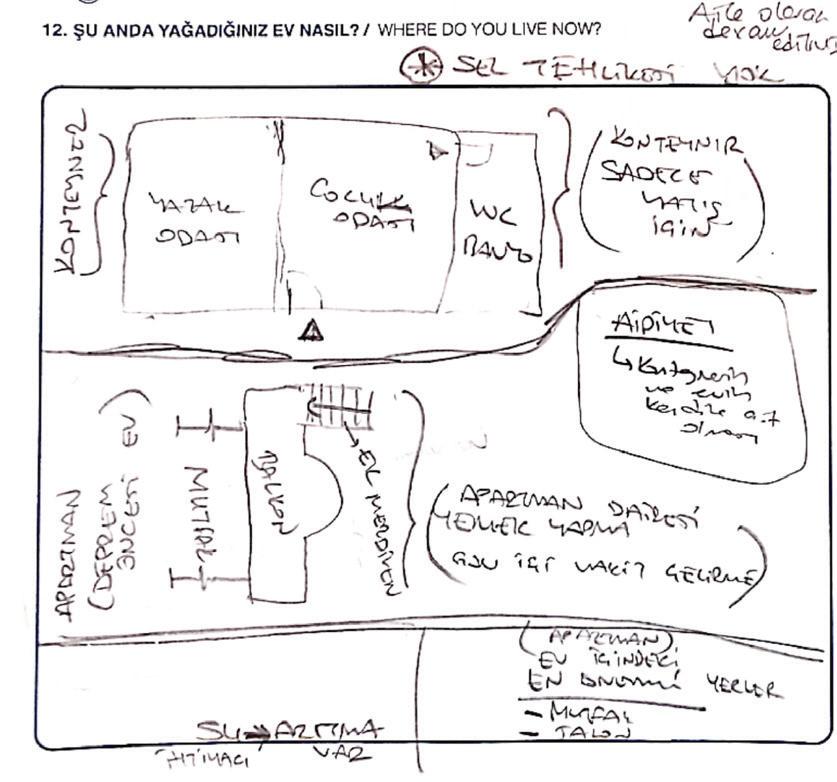 12. ŞU ANDA YAĞADIĞINIZ EV NASIL? / WHERE DO YOU LIVE NOW?
Aile olarak
devam
ediliyor
* SEL TEHLİKESİ YOK
KONTEYNER
YATAK
ODASI
ÇOCUK
ODASI
WC
BANYO
(KONTEYNIR
SADECE
YATIŞ
İÇİN)
AİDİYET
↳ Konteynerin
ve evin
kendine ait
olması
APARTMAN
(DEPREM
ÖNCESİ EV)
MUTFAK
BALKON
→ EK MERDİVEN
(APARTMAN DAİRESİ
YEMEK YAPMA
GÜN İÇİ VAKİT GEÇİRME)
(APARTMAN)
EV İÇİNDEKİ
EN ÖNEMLİ YERLER
- MUTFAK
- SALON
SU ARITMA
İHTİYACI VAR